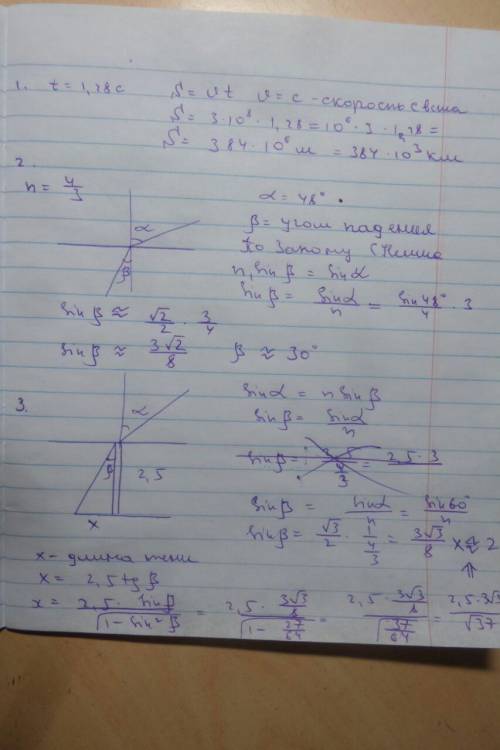 1. t = 1,28 c S = υt υ = c - скорость света
S = 3·10⁸ · 1,28 = 10⁶ · 3 · 1,28 =
S = 384 · 10⁶ м = 384 · 10³ км
2.
n = 4/3 α = 48°
α β β = углом падения
По закону Снеллиа
n₁ sin β = sin α
sin β = sin α / n = sin 48° / 4 · 3
sin β ≈ √2/2 · 3/4
sin β ≈ 3√2/8 β ≈ 30°
3. α sin α = n sin β
sin β = sin α / n
β 2,5 sin β = = 2,5 · 3
4/3
x sin β = sin α / n = sin 60° / n
sin β = √3/2 · 1/(4/3) = 3√3/8 x ≈ 2
x - длина тени
x = 2,5 tg β
x = 2,5 · sin β / √(1 - sin² β) = 2,5 · 3√3/8 / √(1 - 27/64) = 2,5 · 3√3/8 / √(37/64) = 2,5 · 3√3 / √37